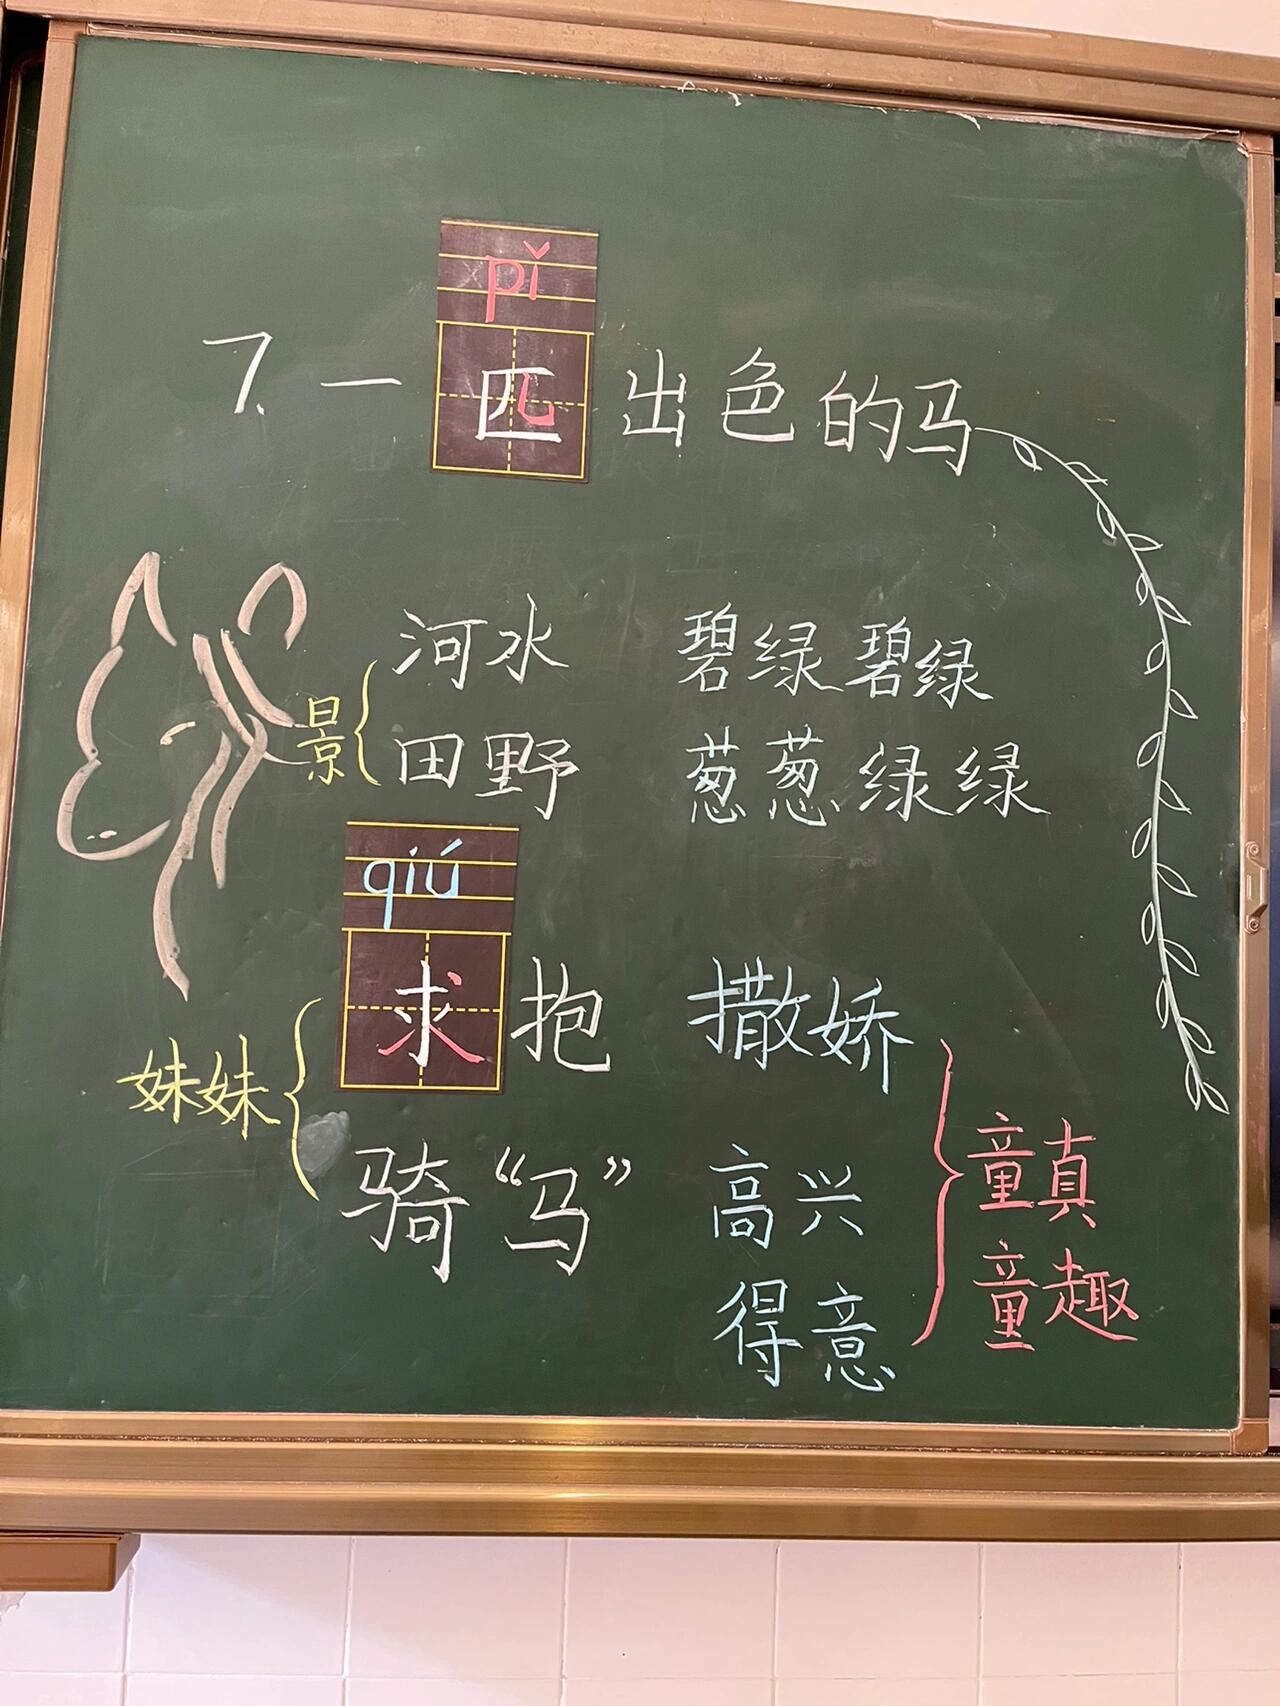 pǐ
7.一匹出色的马
景
河水 碧绿碧绿
田野 葱葱绿绿
qiú
妹妹
求抱 撒娇
骑“马” 高兴
得意
童真
童趣